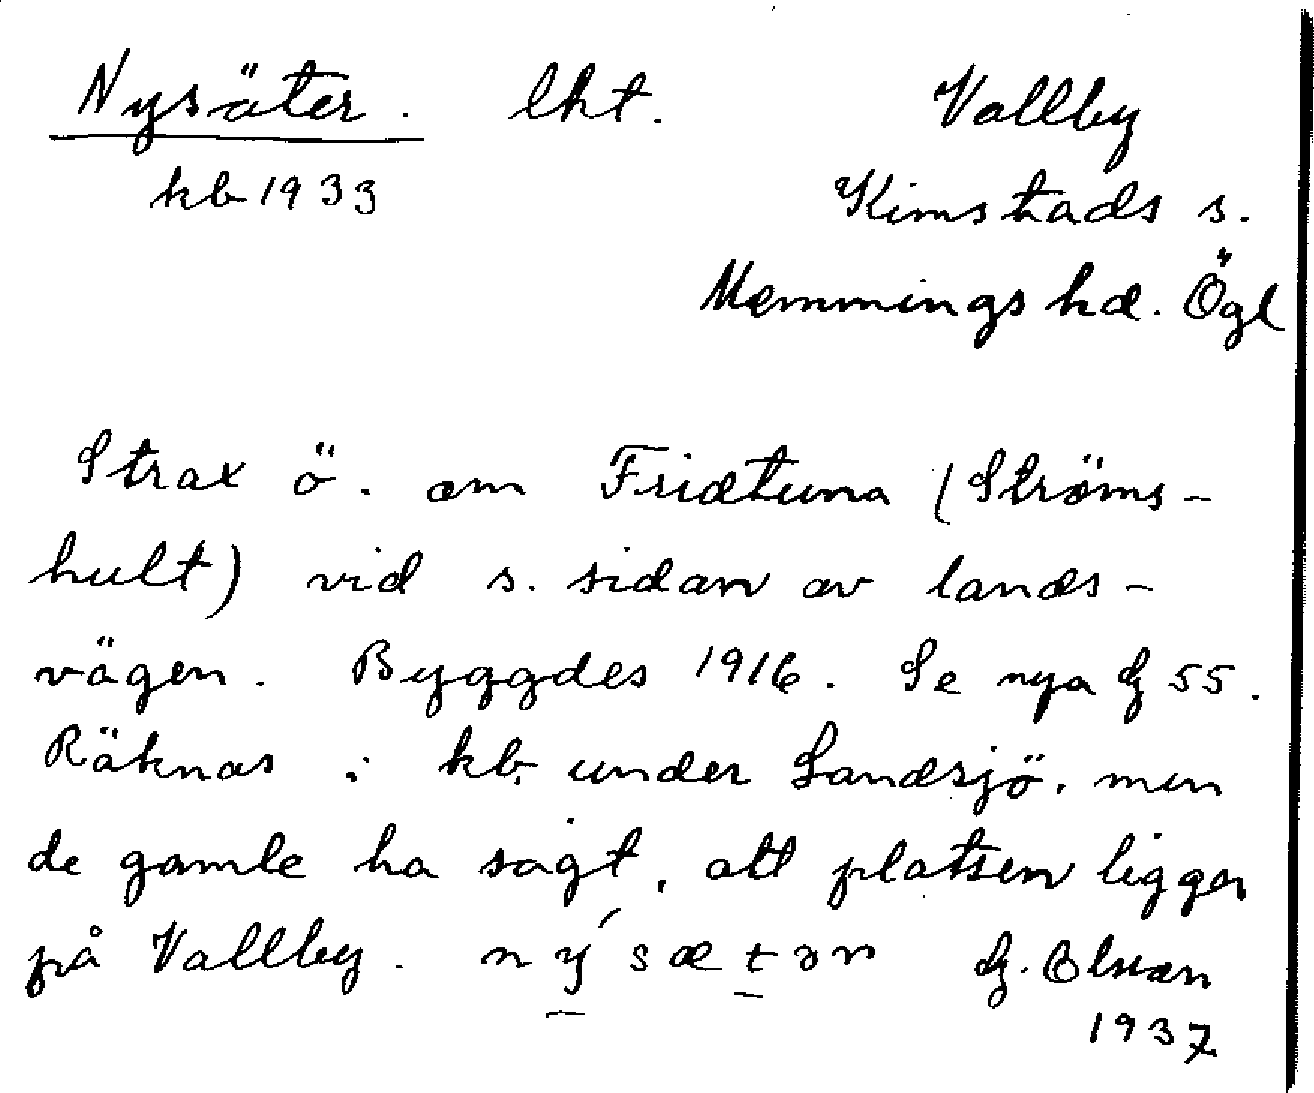 Nysäter. lht. Vallby
kb 1933 Kimstads s.
Memmings hd. Ögl
Strax ö. om Fridtuna (Ströms-
hult) vid s. sidan av lands-
vägen. Byggdes 1916. Se nya G 55.
Räknas i kb. under Landsjö, men
de gamle ha sagt, att platsen ligger
på Vallby. nýsætər G. Olson
1937